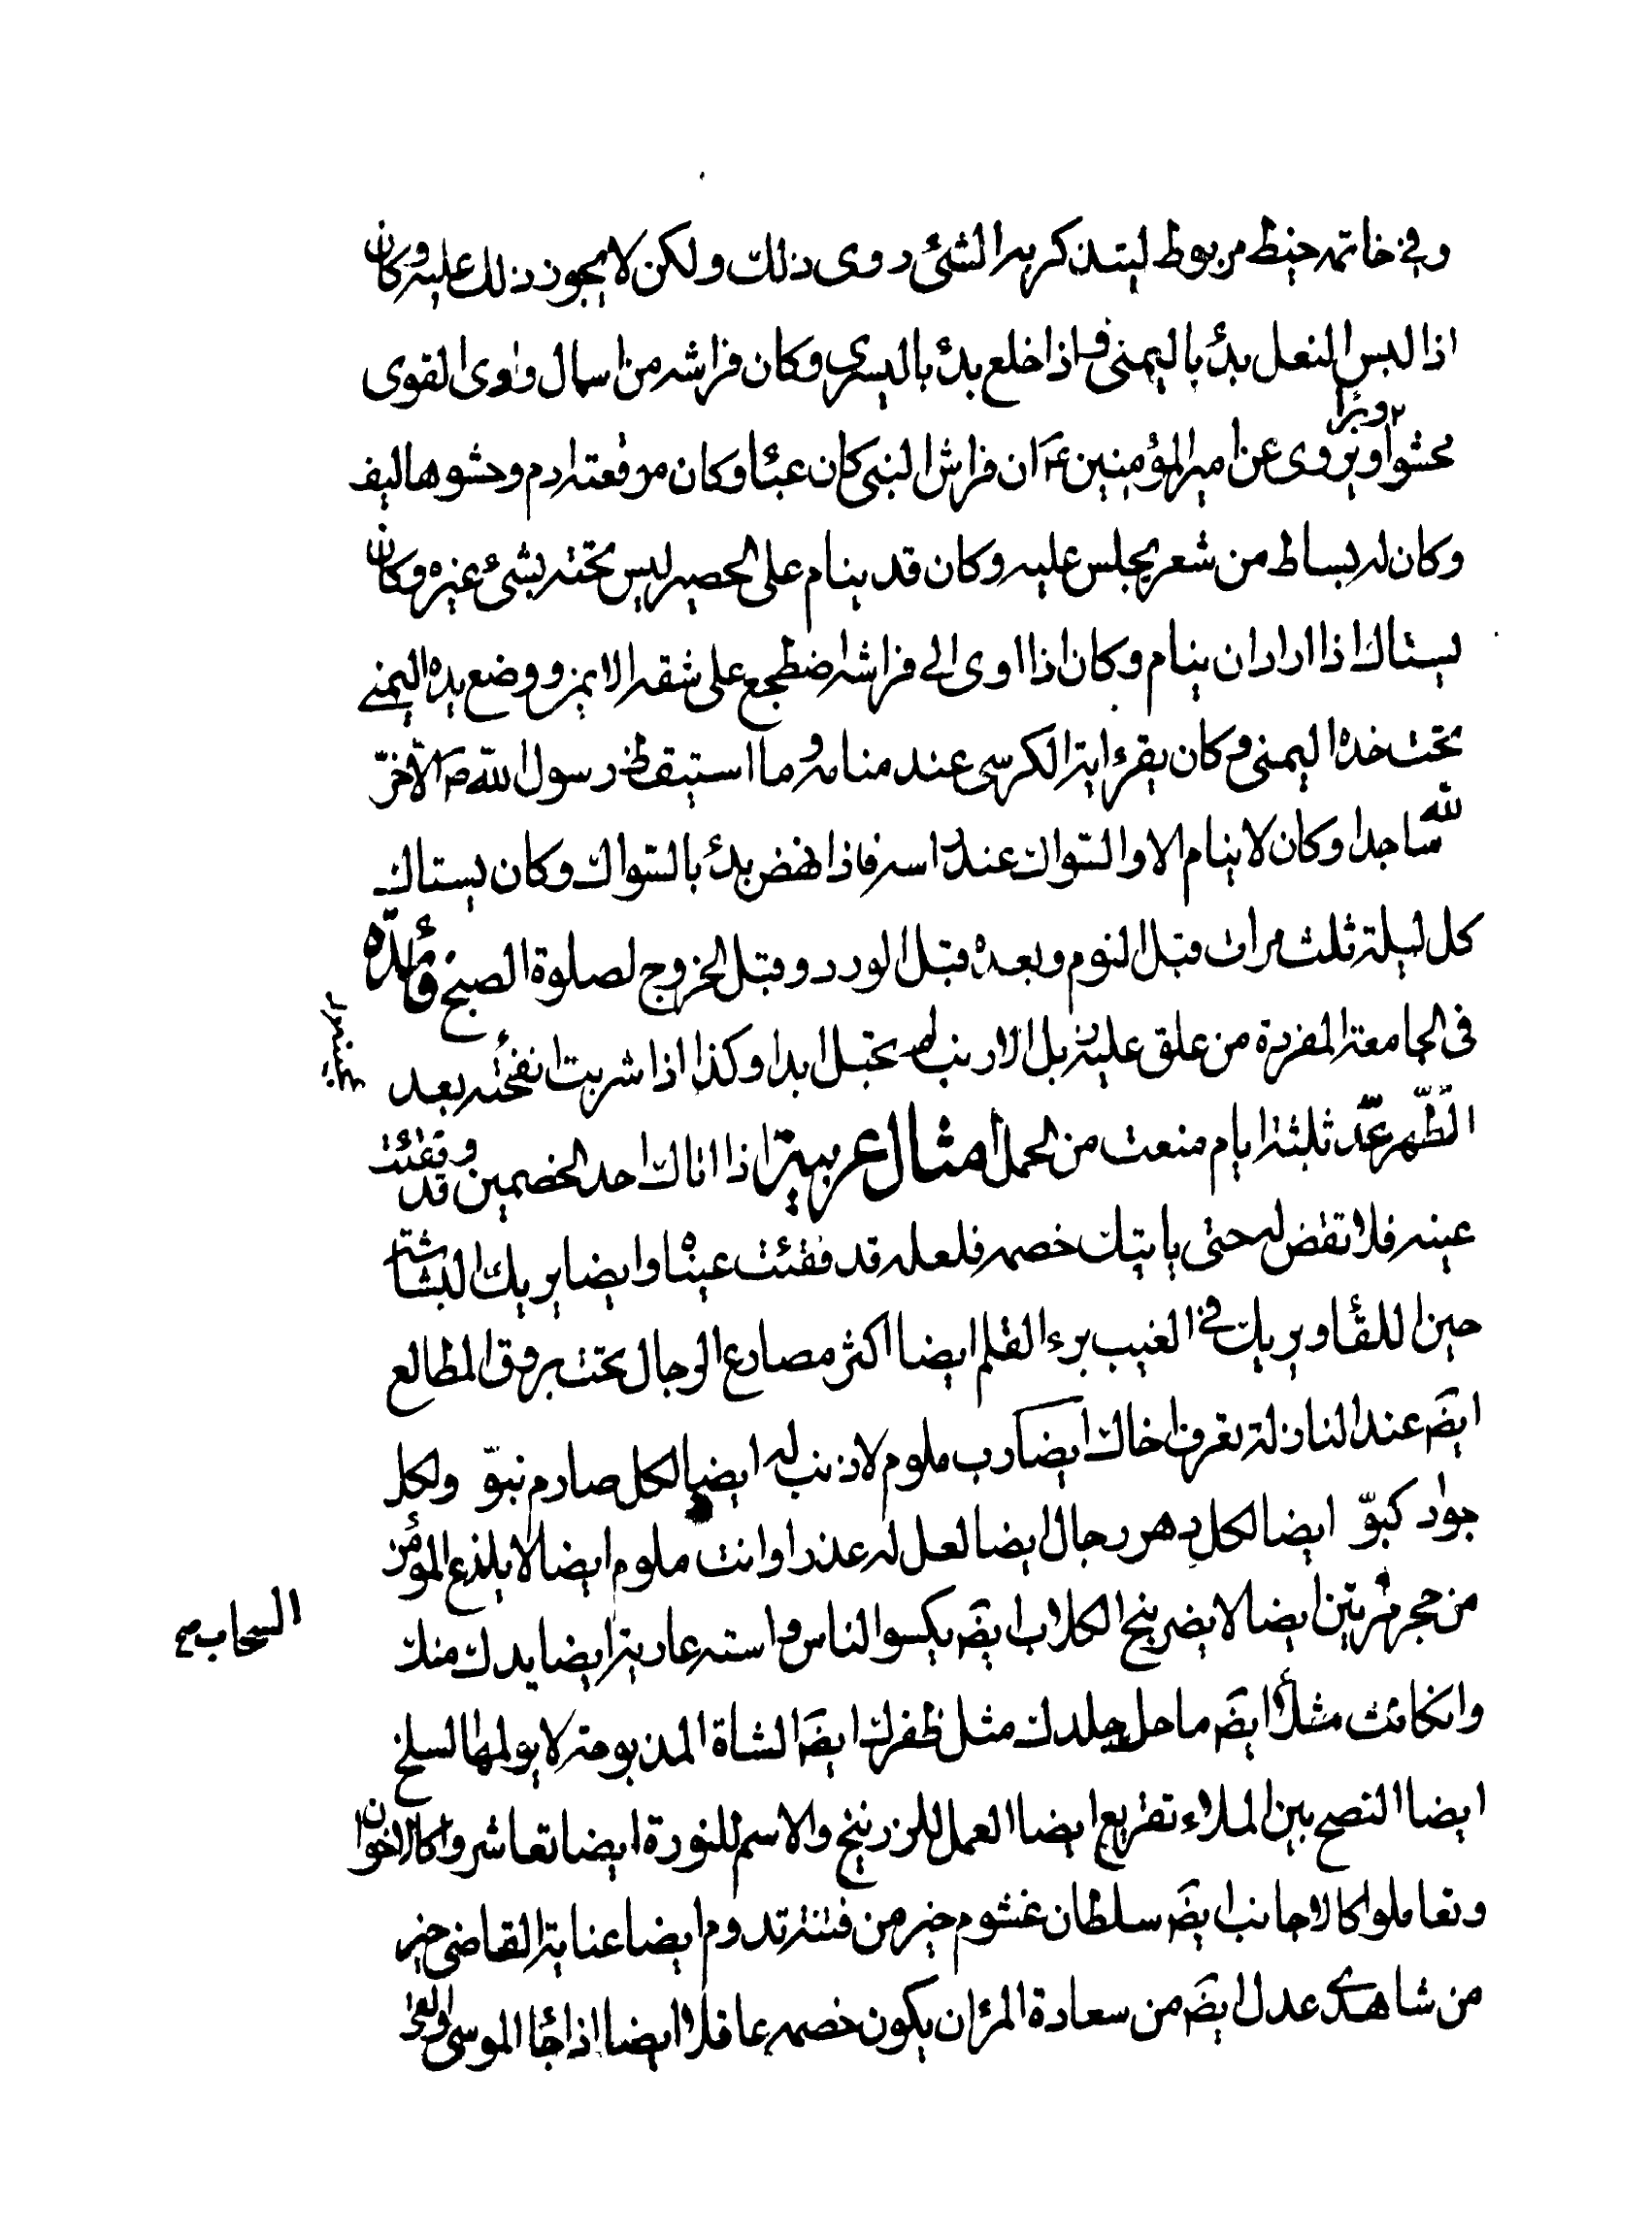 وفي خاتمه خيط مربوط ليتذكر به الشئ روى ذلك ولكن لا يجوز ذلك عليه وكان
اذا لبس النعل بدئ باليمنى واذا خلع بدئ باليسرى وكان فراشه من اسمال واوى القوى
وبرا
محشوا ويروى عن امير المؤمنين ع ان فراش النبى كان عبئا وكان مرفقته ادم وحشوها ليف
وكان له بساط من شعر يجلس عليه وكان قد ينام على الحصير ليس تحته شئ غيره وكان
يستاك اذا اراد ان ينام وكان اذا اوى الى فراشه اضطجع على شقه الايمن ووضع يده اليمنى
تحت خده اليمنى وكان يقرء اية الكرسى عند منامه وما استيقظ رسول الله ص الا خرّ
لله ساجدا وكان لا ينام الا والسّواك عند راسه فاذا نهض بدئ بالسّواك وكان يستاك
كل ليلة ثلث مرات قبل النوم وبعده قبل الورد وقبل الخروج لصلوة الصبح فائدة
فى الجامعة المفردة من علق عليه زبل الارنب لم تحبل ابدا وكذا اذا شربت انفحته بعد
الطّهر عدّ ثلثة ايام منعت من الحمل امثال عربية اذا اتاك احد الخصمين وقد فقئت
عينه فلا تقض له حتى ياتيك خصمه فلعله قد فقئت عيناه وايضا يريك البشاشة
حين اللقاء ويريك في الغيب برء القلم ايضا اكثر مصارع الرجال تحت بروق المطالع
ايضَ عند النازلة تعرف اخاك ايضا رب ملوم لا ذنب له ايضا لكل صارم نبوّ ولكل
جواد كبوّ ايضا لكل دهر رجال ايضا لعل له عذرا وانت ملوم ايضا لا يلدغ المؤمن
من جحر مرتين ايضا لا يضر نبح الكلاب ايضَ يكسوا الناس واسته عارية ايضا يدك منك
السحاب صح
وانكانت مثلا ايضَ ما حل جلدك مثل ظفرك ايضَ الشاة المذبوحة لا يولمها السلخ
ايضا النصح بين الملاء تقريع ايضا العمل للزرنيخ والاسم للنورة ايضا تعاشروا كالاخوان
وتعاملوا كالاجانب ايضَ سلطان غشوم خير من فتنة تدوم ايضا عناية القاضى خير
من شاهدى عدل ايضَ من سعادة المرء ان يكون خصمه عاقلا ايضا اذا جاء الموسى والقى